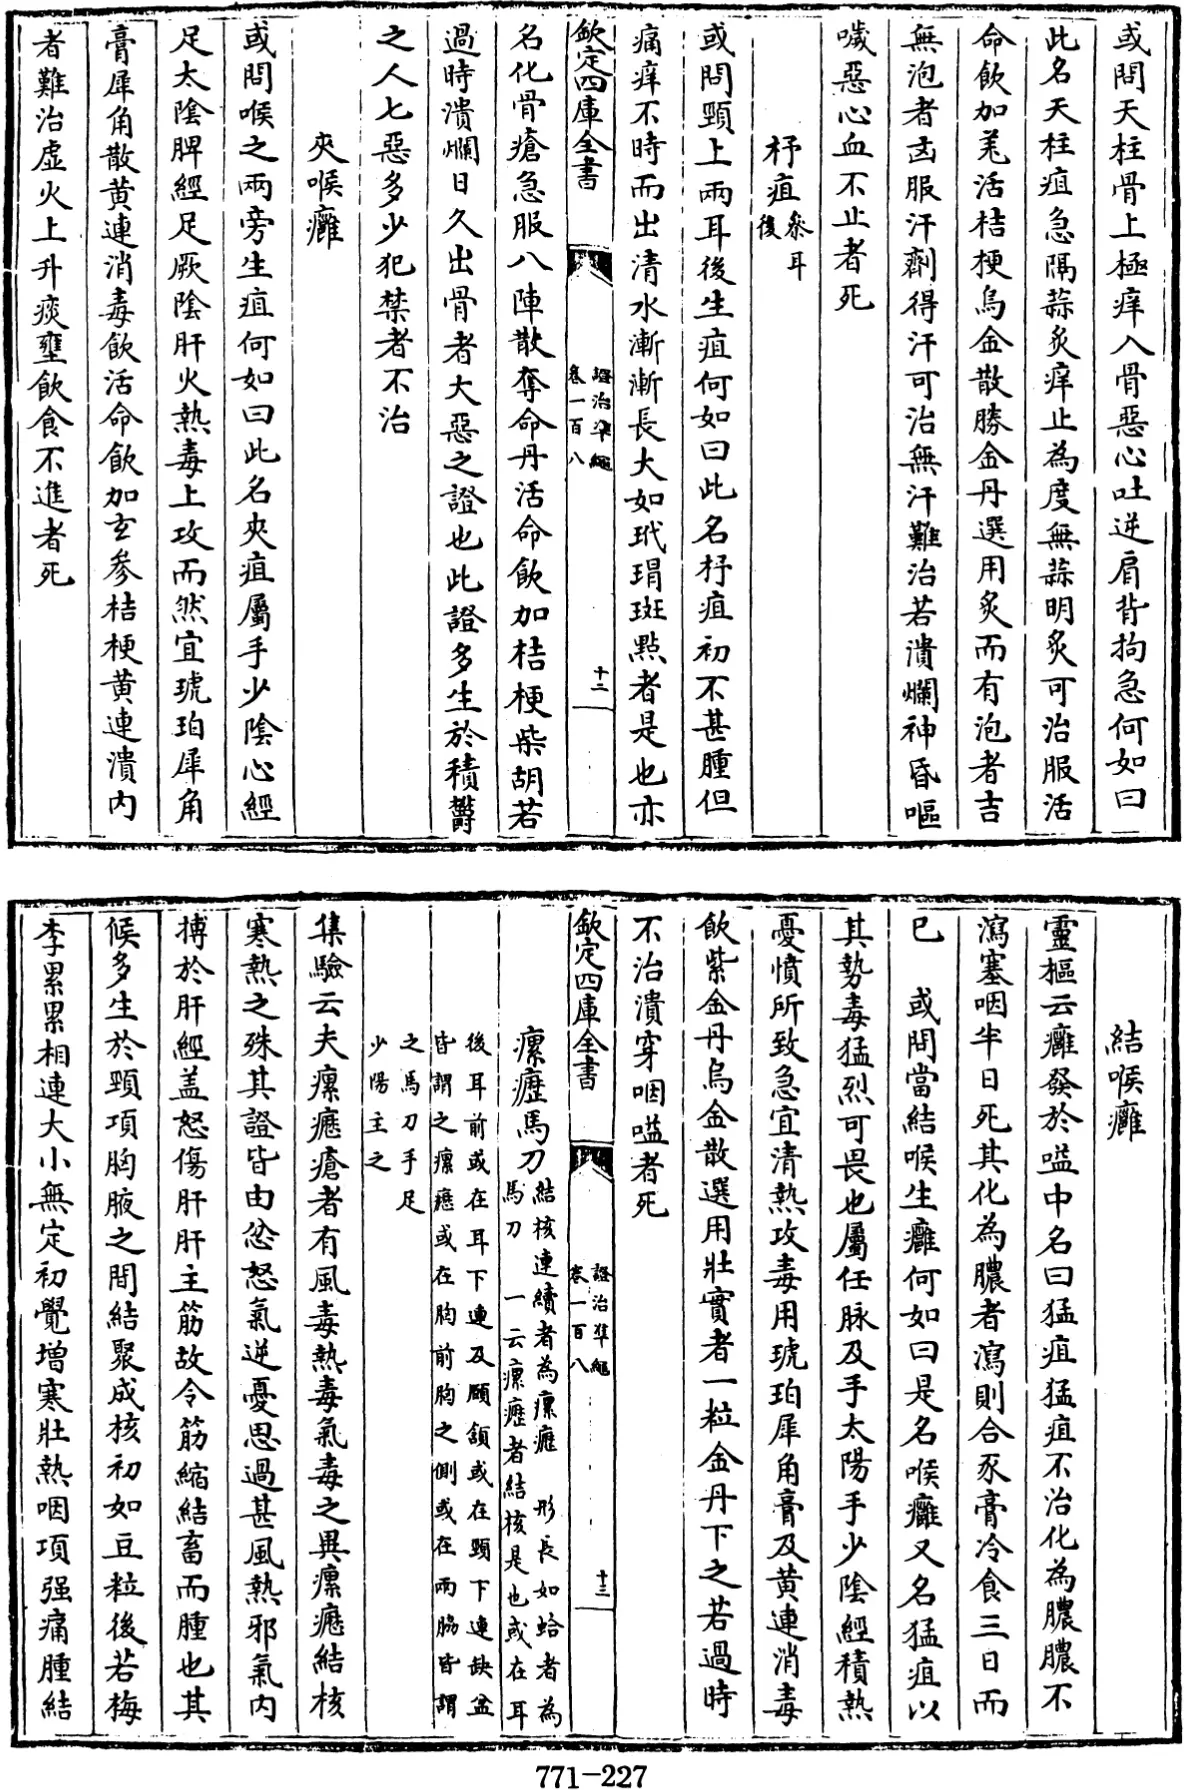 或問天柱骨上極痒入骨惡心吐逆肩背拘急何如曰
此名天柱疽急隔蒜炙痒止為度無蒜明炙可治服活
命飲加羌活桔梗烏金散勝金丹選用炙而有泡者吉
無泡者凶服汗劑得汗可治無汗難治若潰爛神昏嘔
噦惡心血不止者死
杼疽叅耳後
或問頸上兩耳後生疽何如曰此名杼疽初不甚腫但
痛痒不時而出清水漸漸長大如玳瑁斑點者是也亦
欽定四庫全書
證治準繩
卷一百八
十二
名化骨瘡急服八陣散奪命丹活命飲加桔梗柴胡若
過時潰爛日久出骨者大惡之證也此證多生於積欝
之人七惡多少犯禁者不治
夾喉癰
或問喉之兩旁生疽何如曰此名夾疽屬手少陰心經
足太陰脾經足厥陰肝火熱毒上攻而然宜琥珀犀角
膏犀角散黄連消毒飲活命飲加玄參桔梗黄連潰内
者難治虛火上升痰壅飲食不進者死
結喉癰
靈樞云癰發於嗌中名曰猛疽猛疽不治化為膿膿不
瀉塞咽半日死其化為膿者瀉則合豕膏冷食三日而
已　或問當結喉生癰何如曰是名喉癰又名猛疽以
其勢毒猛烈可畏也屬任脉及手太陽手少陰經積熱
憂憤所致急宜清熱攻毒用琥珀犀角膏及黄連消毒
飲紫金丹烏金散選用壯實者一粒金丹下之若過時
不治潰穿咽嗌者死
欽定四庫全書
證治準繩
卷一百八
十三
瘰癧馬刀結核連續者為瘰癧　形長如蛤者為
馬刀　一云瘰癧者結核是也或在耳
後耳前或在耳下連及頤頷或在頸下連缺盆
皆謂之瘰癧或在胸前胸之側或在兩脇皆謂
之馬刀手足
少陽主之
集驗云夫瘰癧瘡者有風毒熱毒氣毒之異瘰癧結核
寒熱之殊其證皆由忿怒氣逆憂思過甚風熱邪氣内
搏於肝經盖怒傷肝肝主筋故令筋縮結畜而腫也其
候多生於頸項胸腋之間結聚成核初如豆粒後若梅
李累累相連大小無定初覺増寒壯熱咽項强痛腫結
771-227